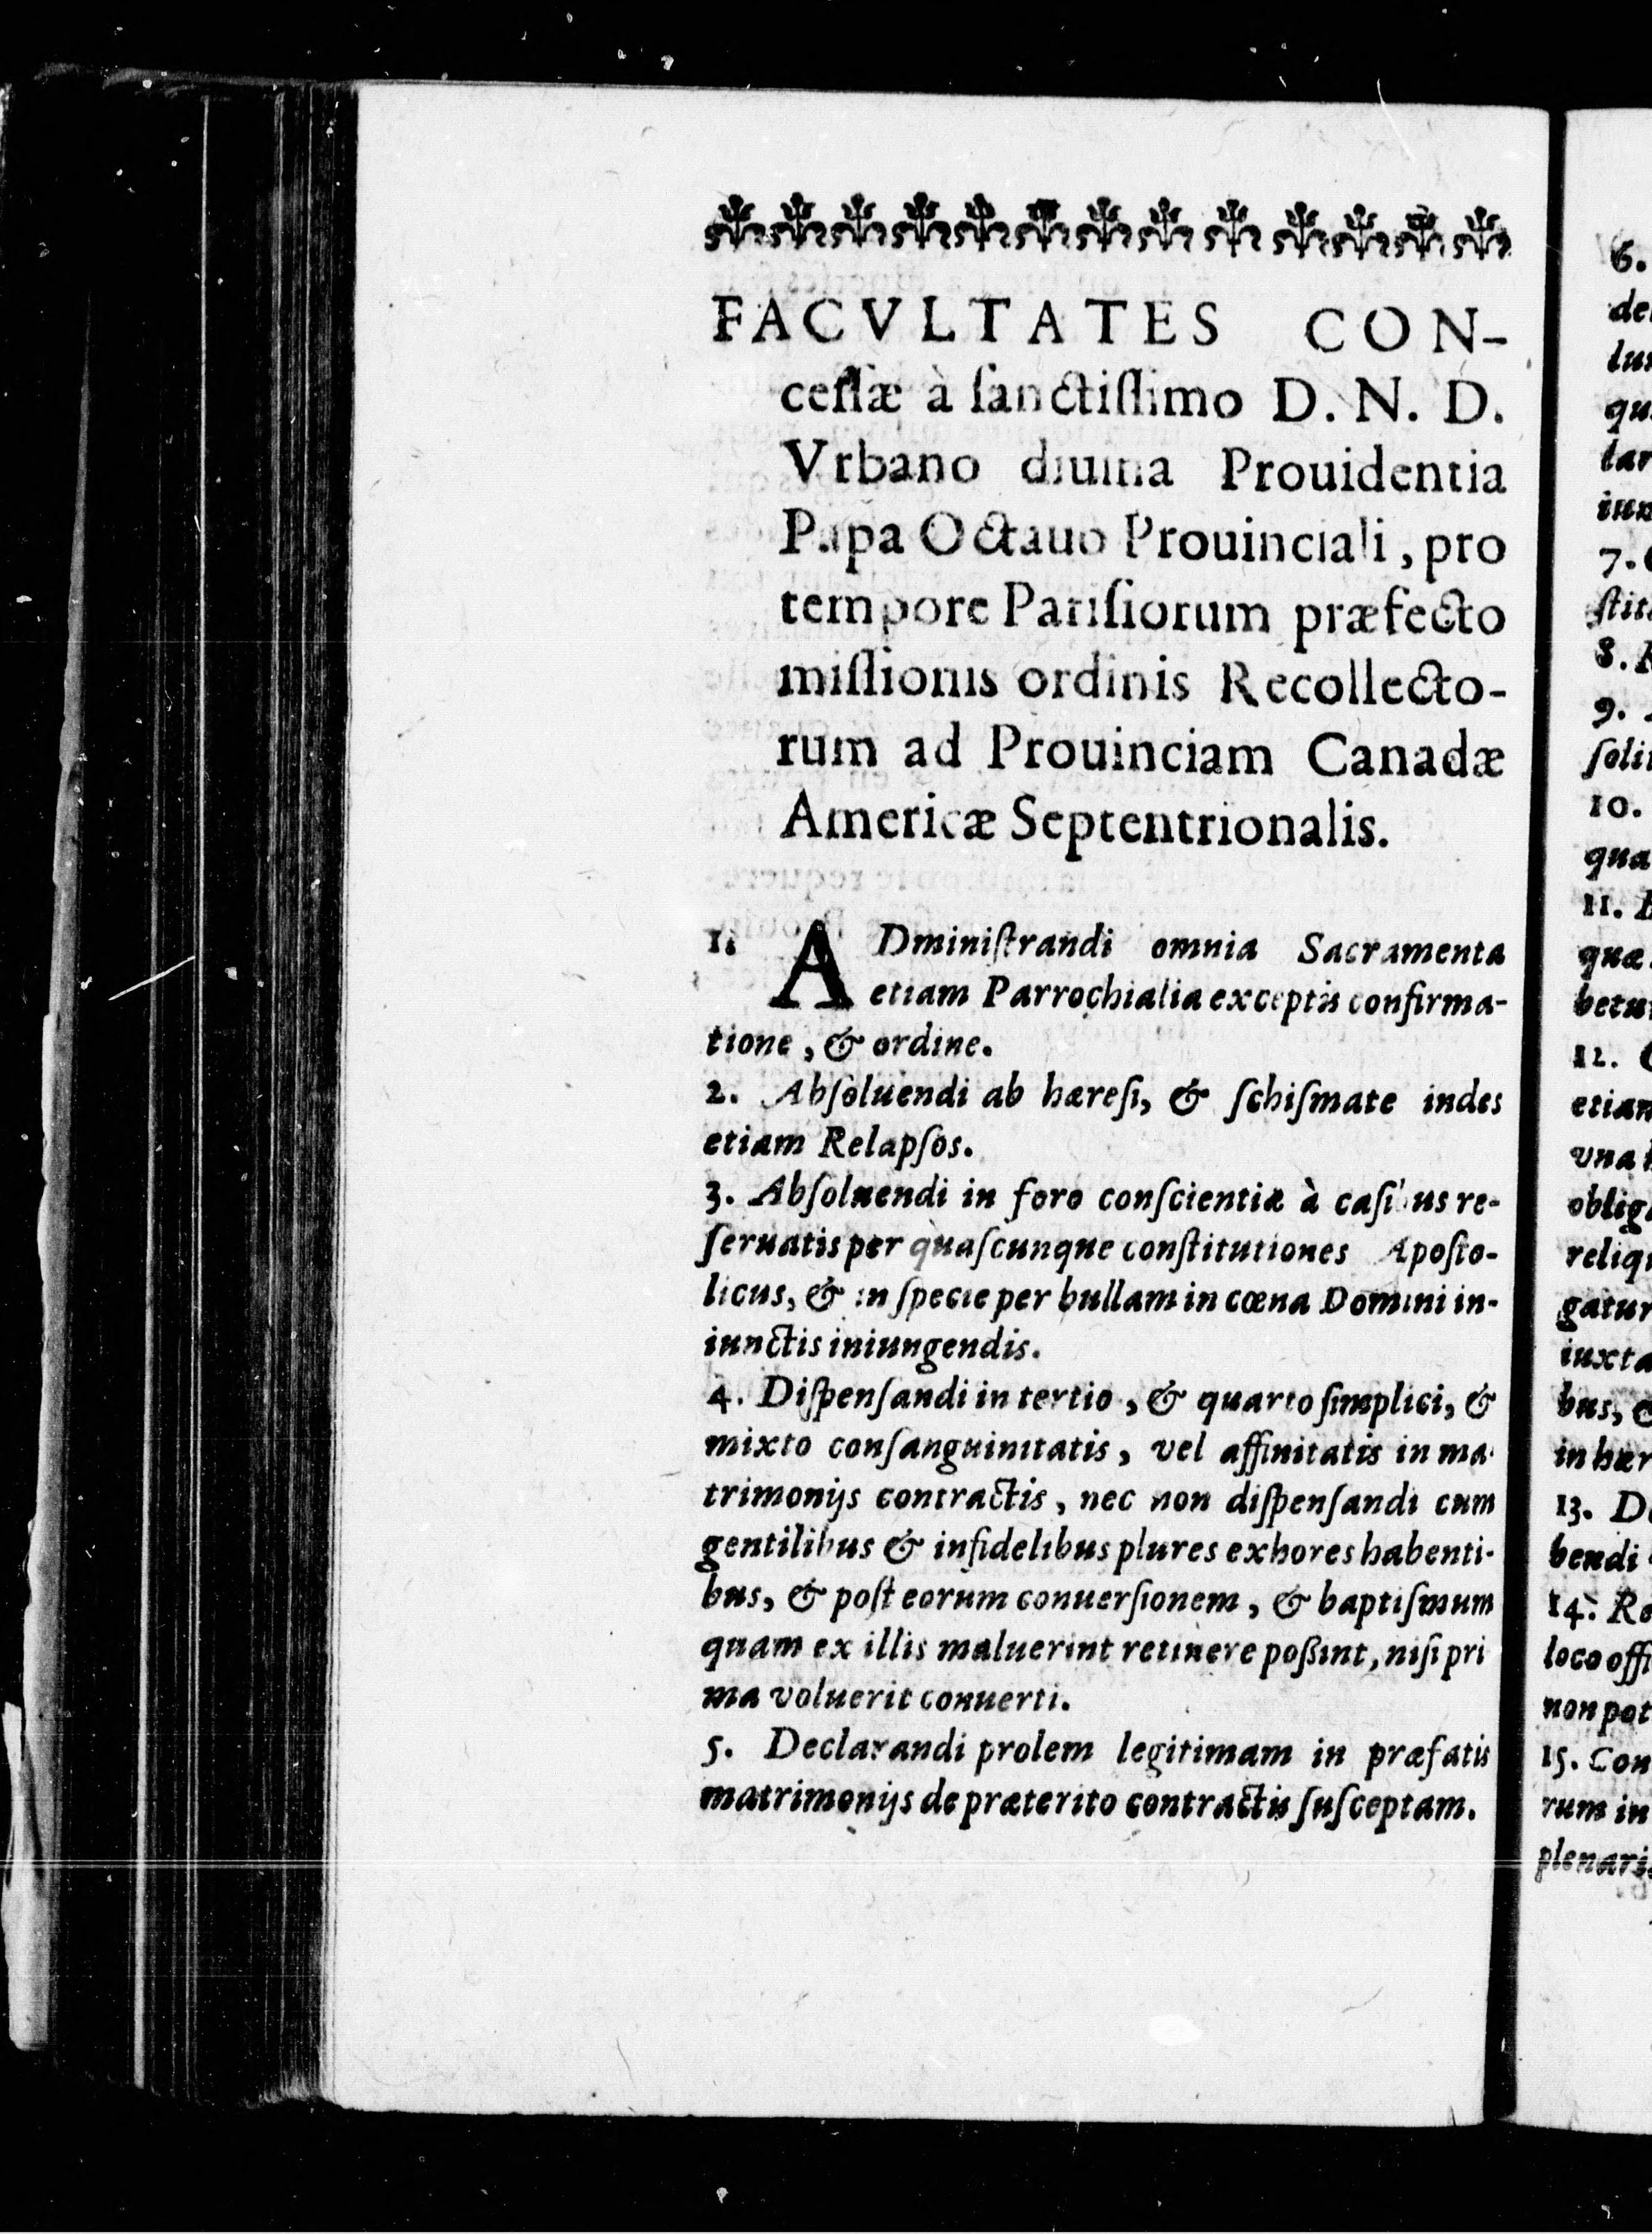 FACVLTATES CON-
ceſſæ à ſanctiſſimo D. N. D.
Vrbano diuina Prouidentia
Papa Octauo Prouinciali, pro
tempore Pariſiorum præfecto
miſſionis ordinis Recollecto-
rum ad Prouinciam Canadæ
Americæ Septentrionalis.
1. ADminiſtrandi omnia Sacramenta
etiam Parrochialia exceptis confirma-
tione, & ordine.
2. Abſoluendi ab hæreſi, & ſchiſmate indes
etiam Relapſos.
3. Abſoluendi in foro conſcientiæ à caſibus re-
ſeruatis per quaſcunque conſtitutiones Apoſto-
licus, & in ſpecie per bullam in cœna Domini in-
iunctis iniungendis.
4. Diſpenſandi in tertio, & quarto ſimplici, &
mixto conſanguinitatis, vel affinitatis in ma-
trimonijs contractis, nec non diſpenſandi cum
gentilibus & infidelibus plures exhores habenti-
bus, & poſt eorum conuerſionem, & baptiſmum
quam ex illis maluerint retinere poßint, niſi pri
ma voluerit conuerti.
5. Declarandi prolem legitimam in præfatis
matrimonijs de præterito contractis ſuſceptam.
6.
de
qu
7.
8.
9.
ſoli
10.
qua
11.
quæ
betu
12.
etiam
vna
oblig
reliq
gatur
iuxta
bus, &
in hær
13. D
bendi
14. Re
loco offi
non pot
15. Con
rum in
plenaris